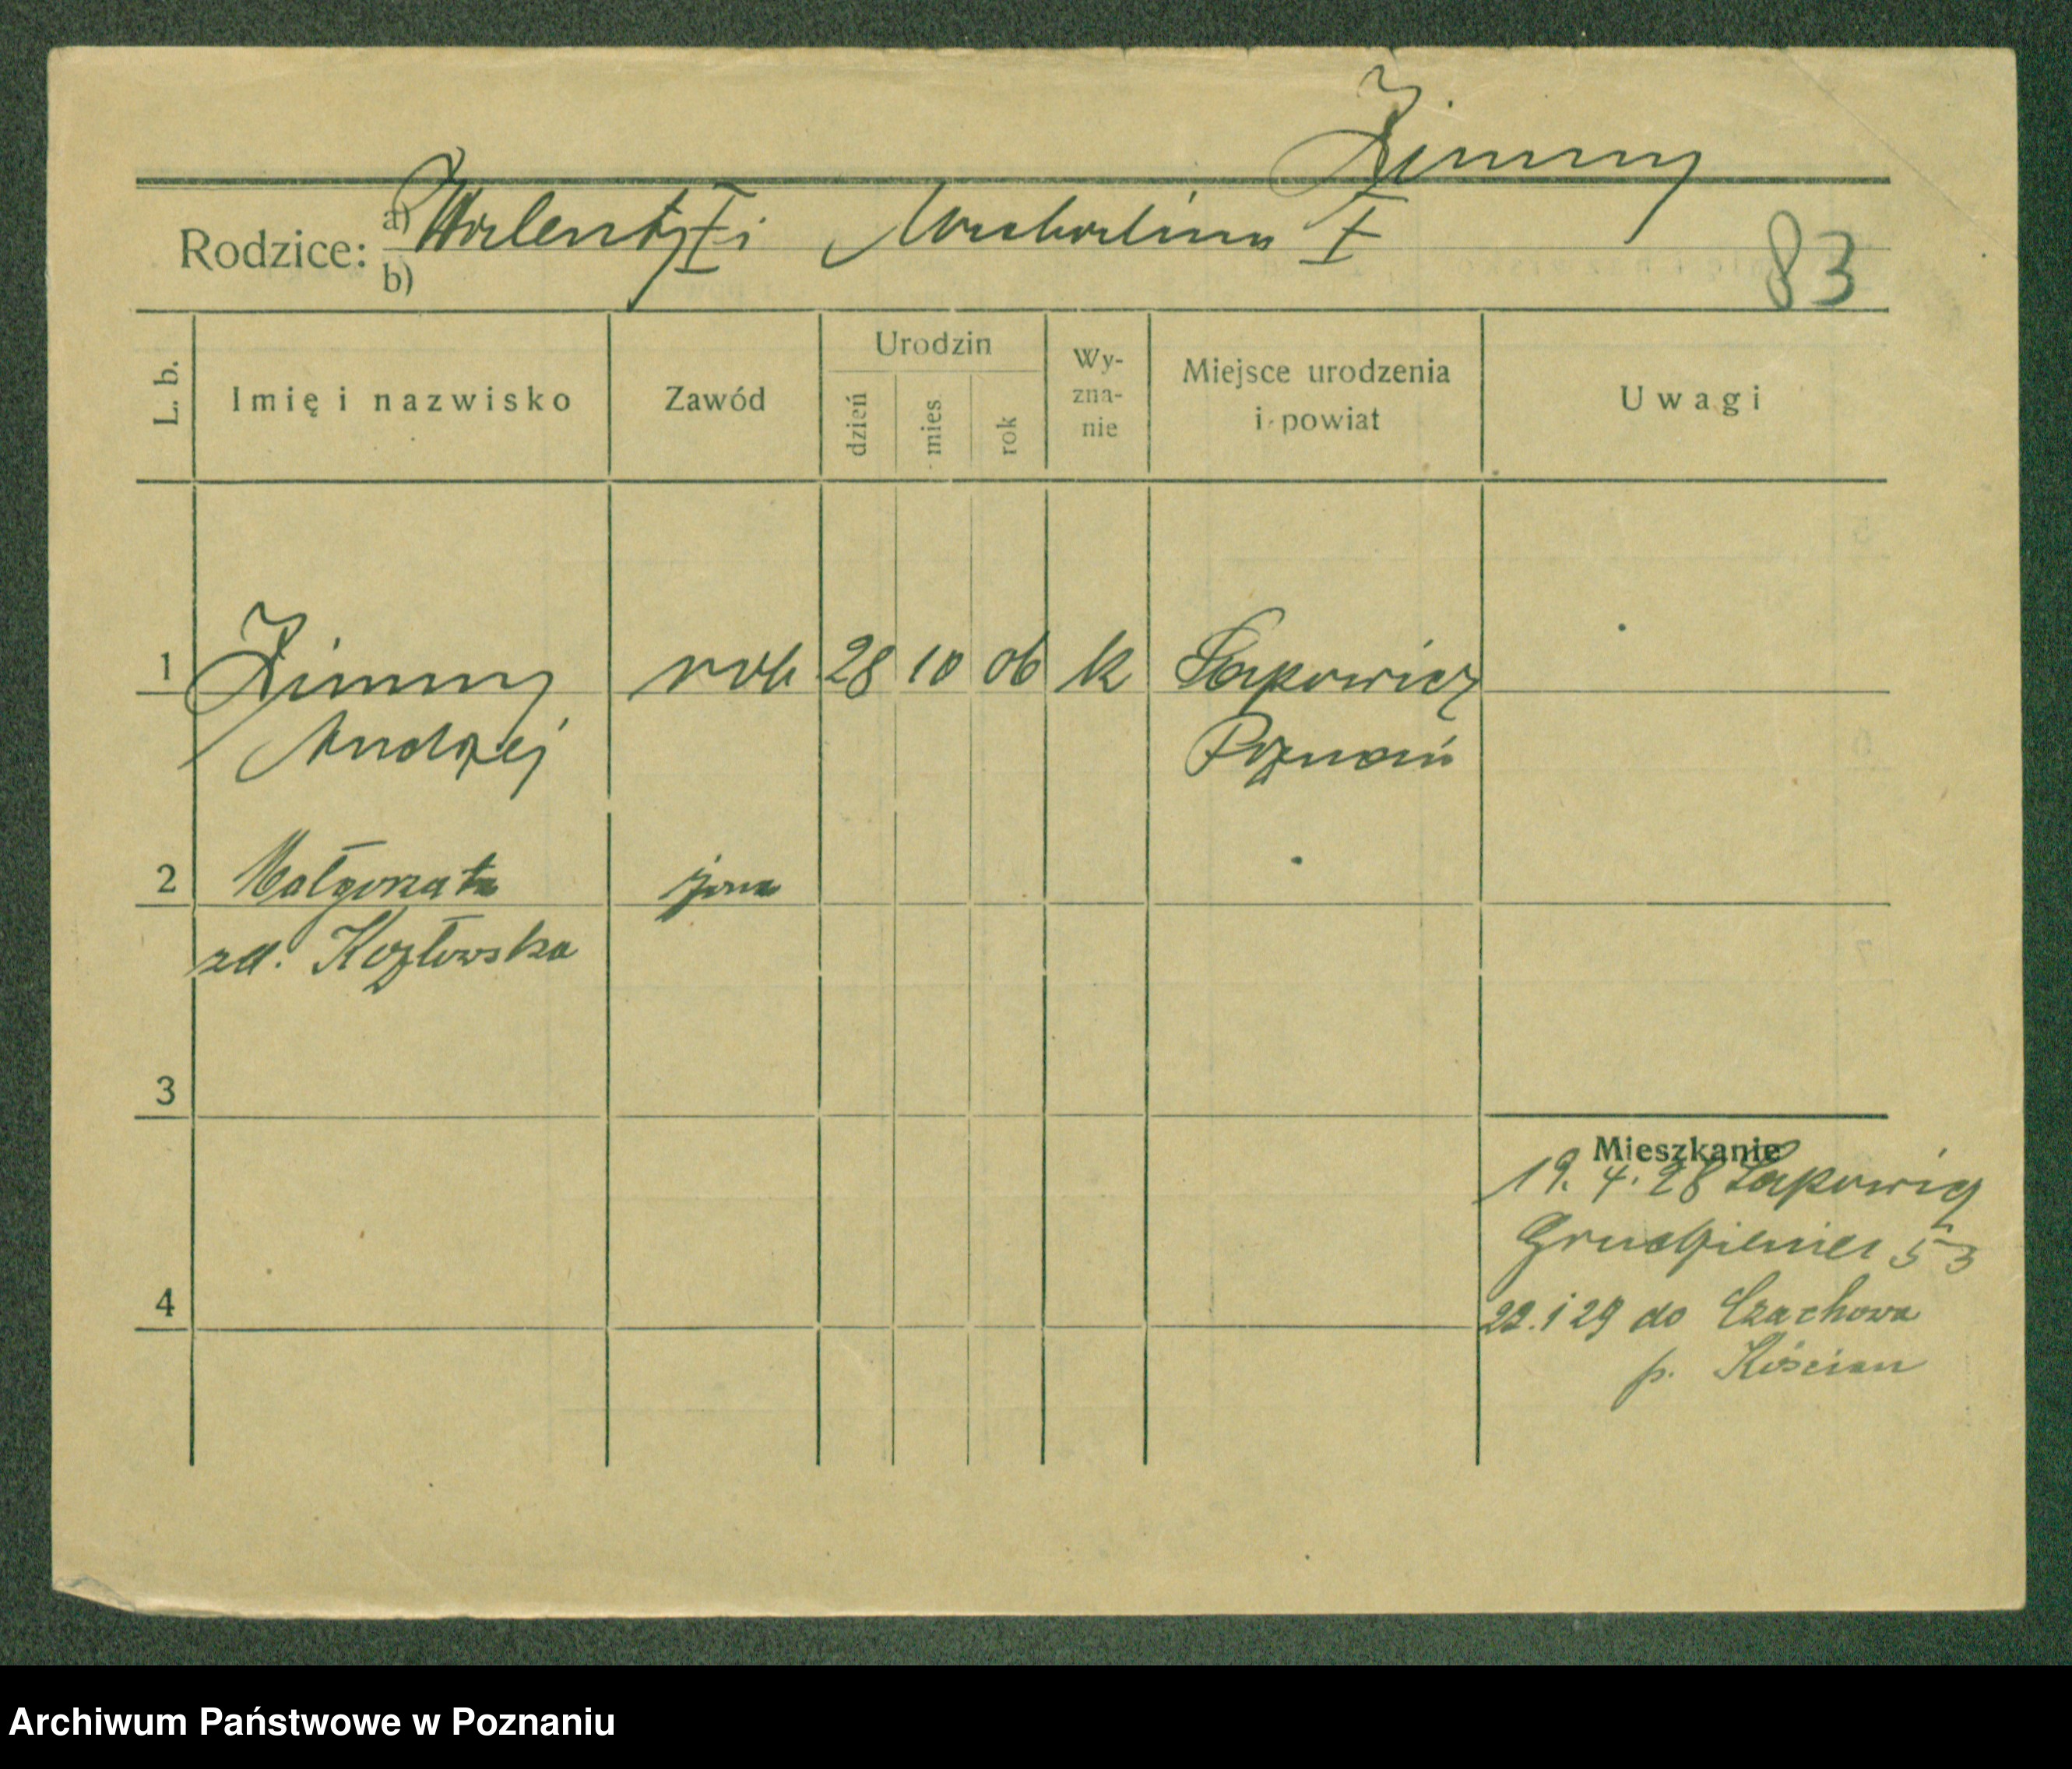 Zimny
Rodzice: a) Walenty I i I
b)
83
L. b.
Imię i nazwisko
Zawód
Urodzin
dzień
mies.
rok
Wy-
zna-
nie
Miejsce urodzenia
i powiat
Uwagi
1 Zimny rob 28 10 06 k Sapowicz
Andrzej Poznań
2 Małgorzata żona
zd. Kozłowska
3
Mieszkanie
19. 4. 28 Sapowicz
53
4
22. 1 29 do Czachowa
p. Kościan
Archiwum Państwowe w Poznaniu